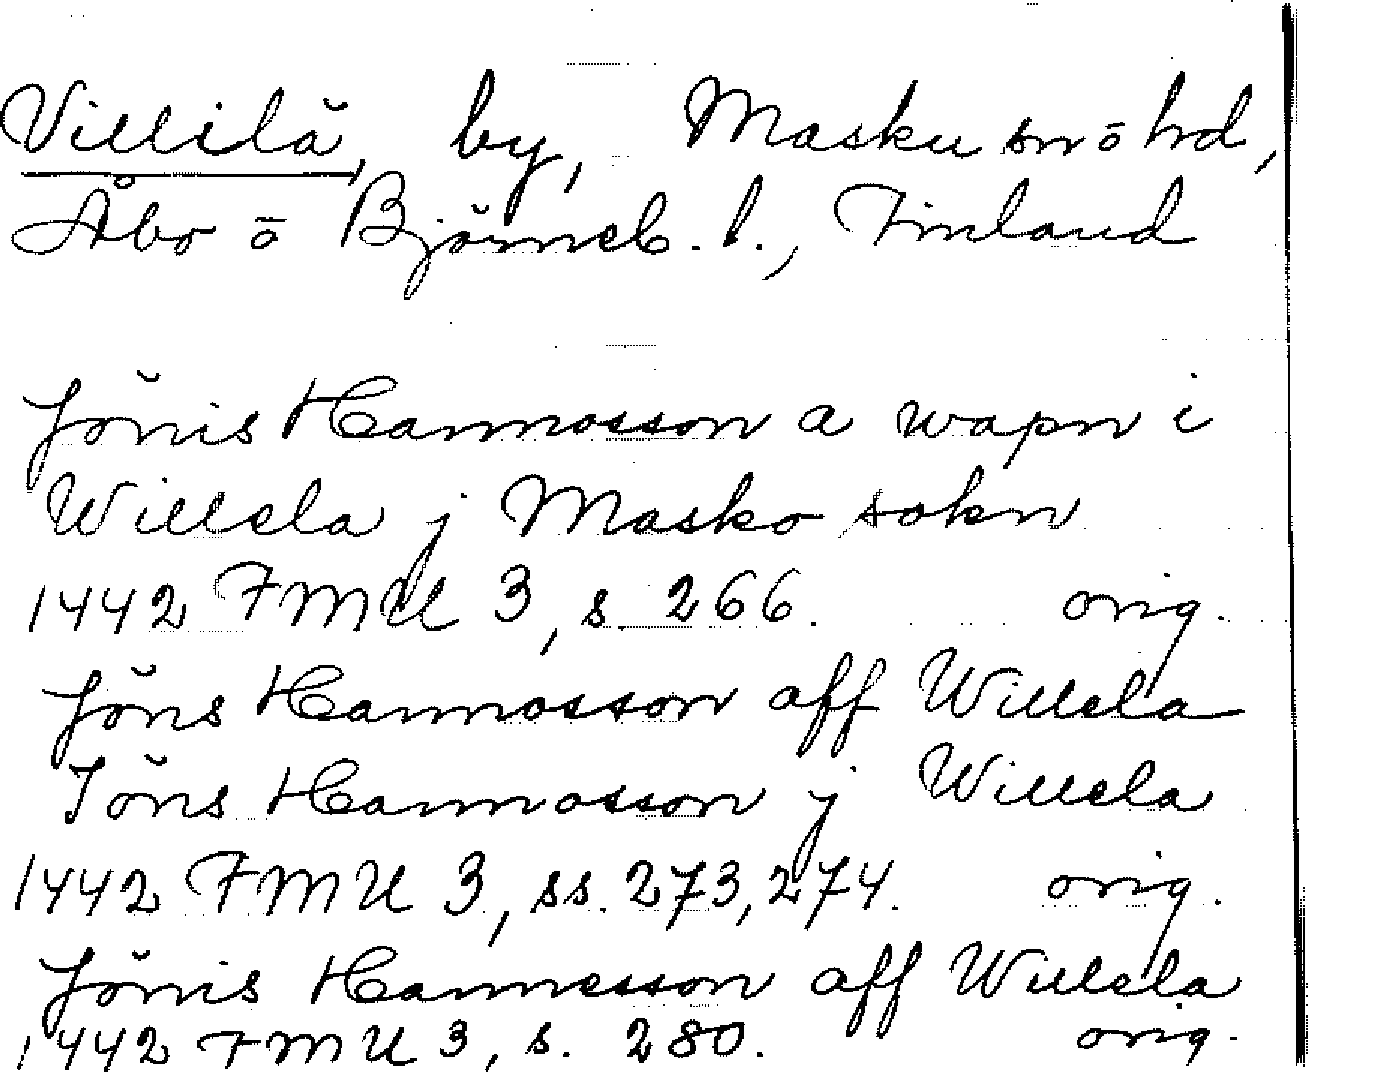 Villilä, by, Masku sn o hd,
Åbo o Björneb. l., Finland
Jönis Hannosson a wapn i
Willela j Masko sokn
1442 FMU 3, s. 266. orig.
Jöns Hannosson aff Willela
Jöns Hannosson j Willela
1442 FMU 3, ss. 273, 274. orig.
Jönis Hannesson aff Willela
1442 FMU 3, s. 280. orig.